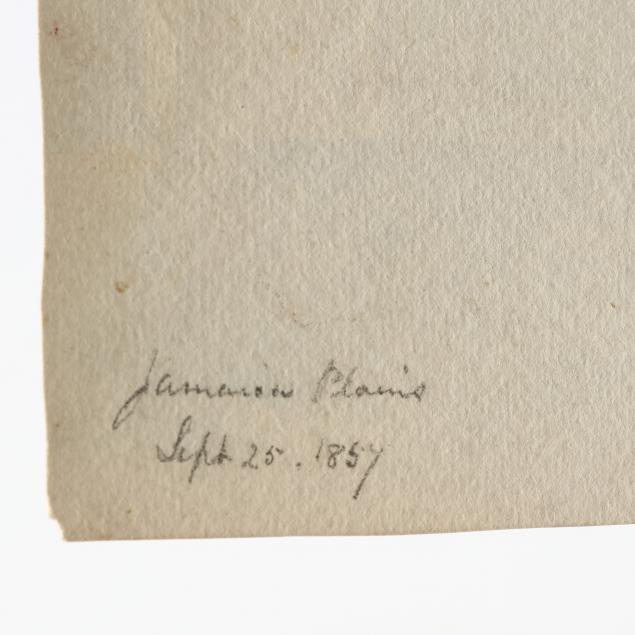 Jamaica Plains
Sept 25. 1857